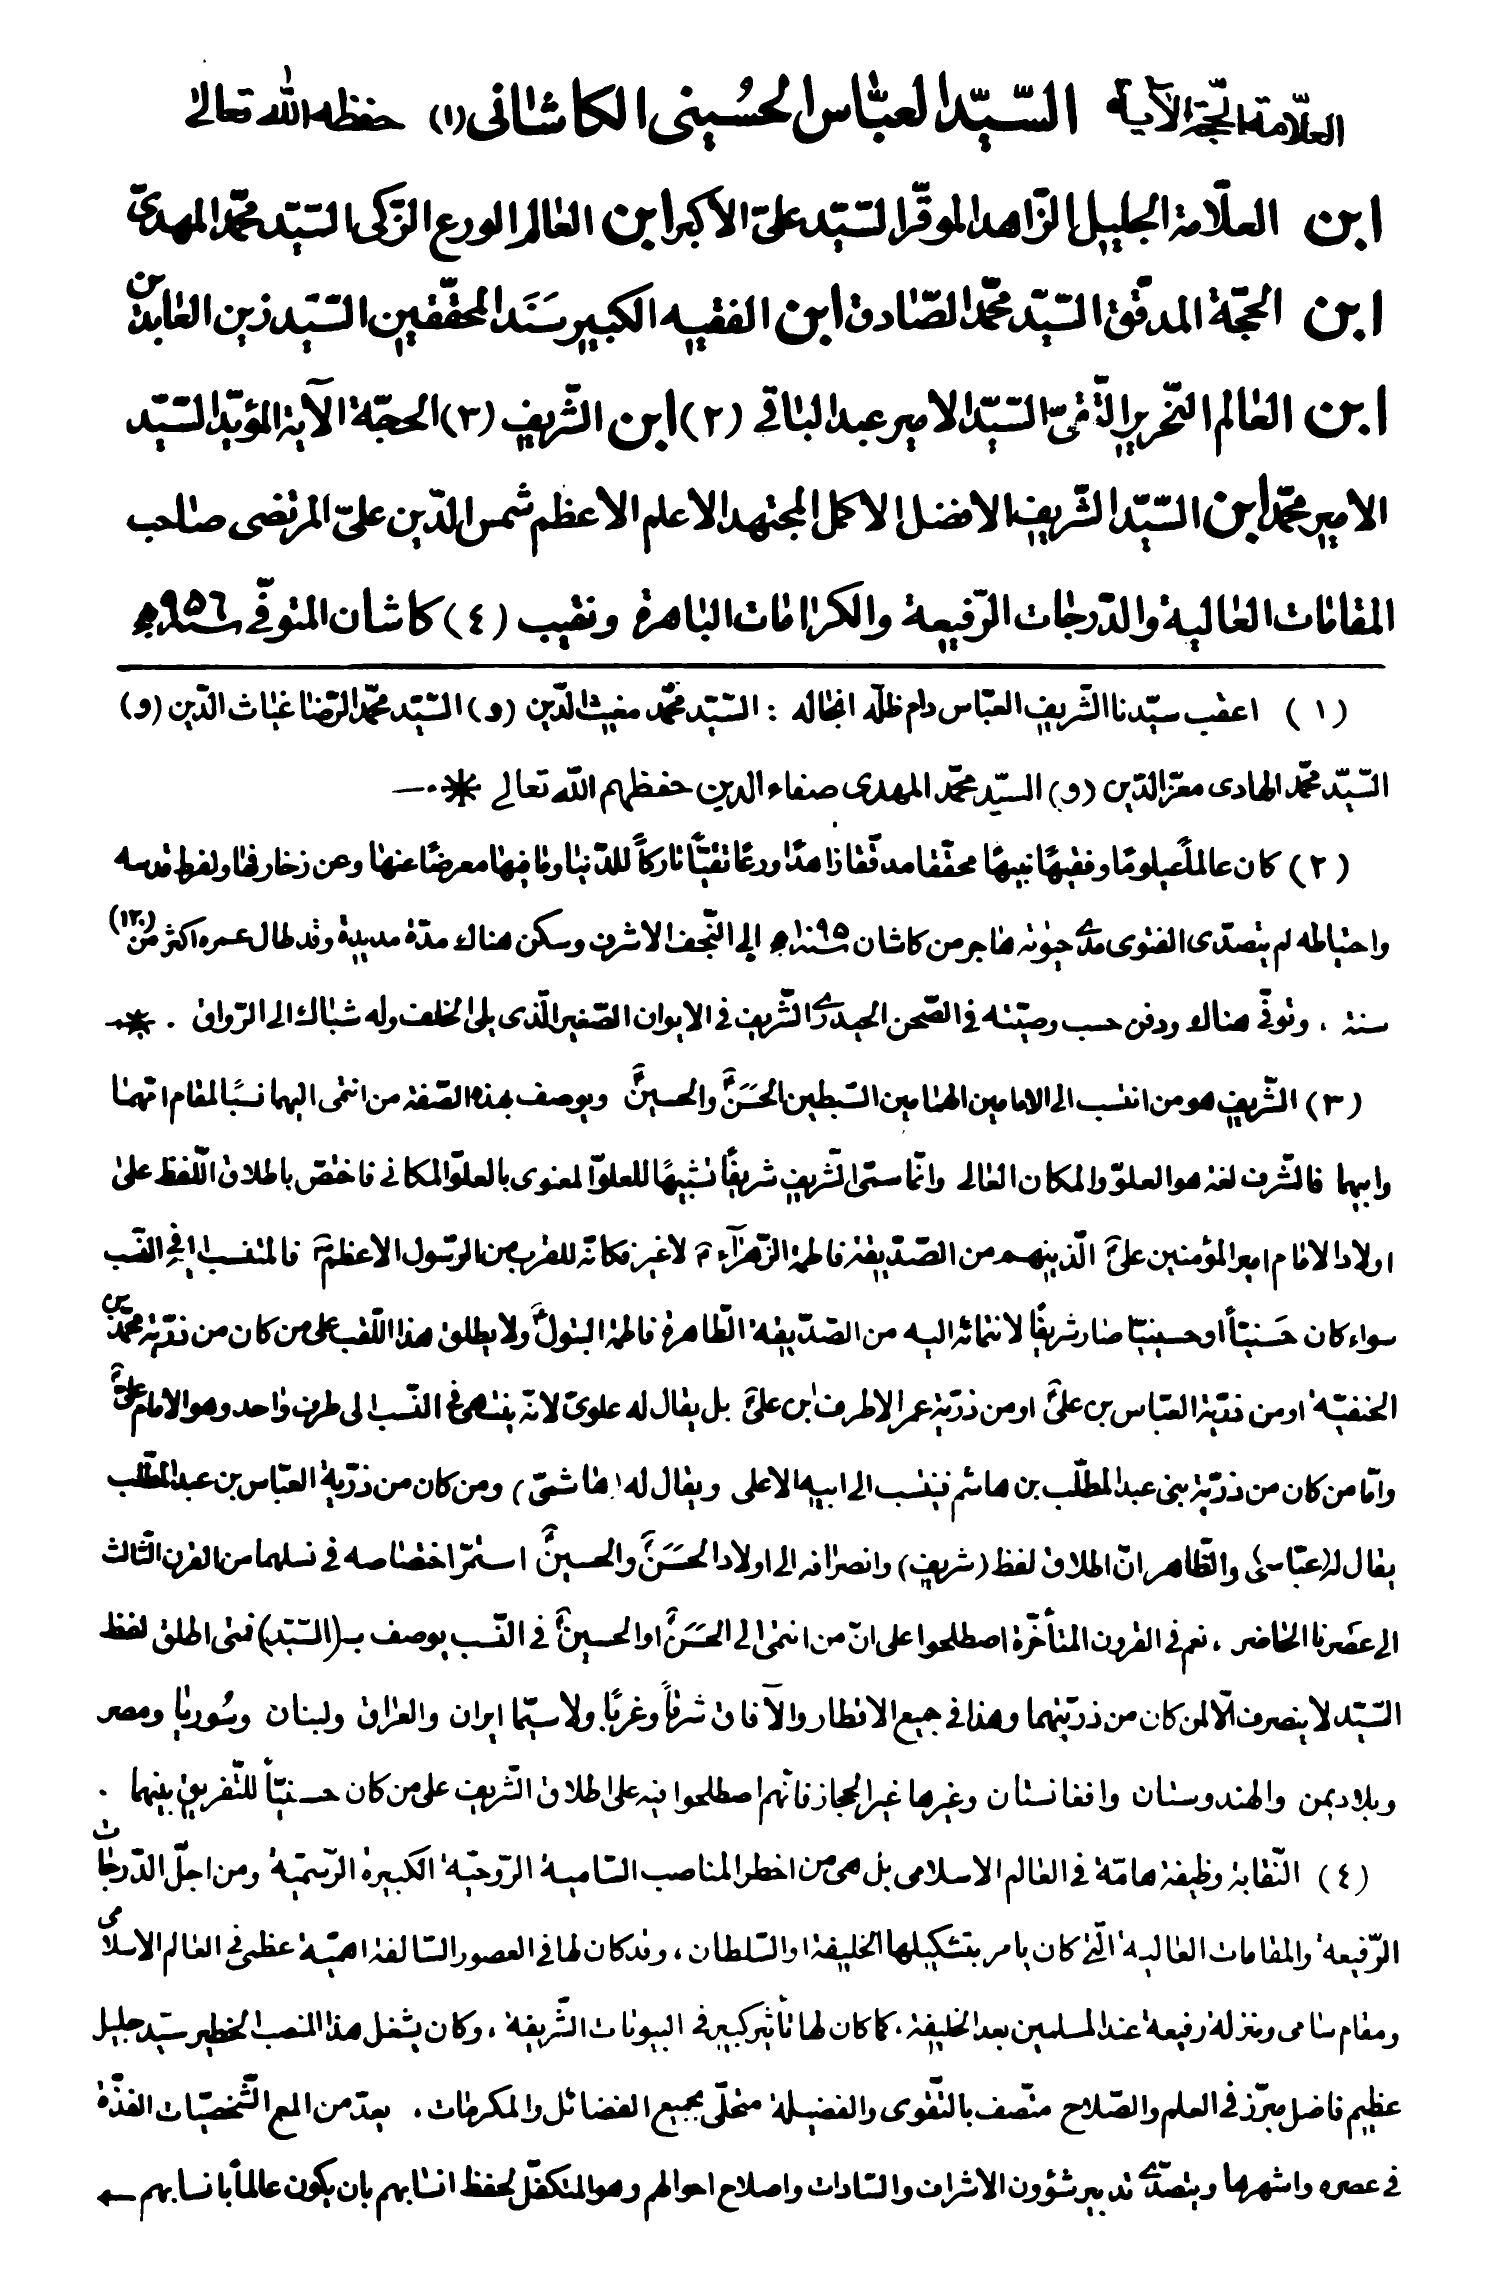 العلّامة الحجّة الآية السّيّد العبّاس الحُسيني الكاشاني (١) حفظه الله تعالى
ابن العلّامة الجليل الزّاهد الموقّر السّيّد عليّ الأكبر ابن العالم الورع الزّكي السّيّد محمّد المهديّ
ابن الحجّة المدقّق السّيّد محمّد الصّادق ابن الفقيه الكبير سَنَد المحقّقين السّيّد زين العابدين
ابن العالم النّحرير التّقيّ السّيّد الامير عبد الباقي (٢) ابن الشّريف (٣) الحجّة الآية المؤيّد السّيّد
الامير محمّد ابن السّيّد الشّريف الافضل الاكمل المجتهد الاعلم الاعظم شمس الدّين عليّ المرتضى صاحب
المقامات العالية والدّرجات الرّفيعة والكرامات الباهرة ونقيب (٤) كاشان المتوفّى سنة ٩٥٦ ه
(١) اعقب سيّدنا الشّريف العبّاس دام ظلّه انجاله : السّيّد محمّد مغيث الدّين (و) السّيّد محمّد الرّضا غياث الدّين (و)
السّيّد محمّد الهادي معزّ الدّين (و) السيّد محمّد المهدي صفاء الدين حفظهم الله تعالى *
(٢) كان عالماً عيلومًا وفقيهًا نبيهًا محقّقا مدقّقا زاهدًا ورعًا تقيّاً تاركاً للدّنيا وما فيها معرضًا عنها وعن زخارفها ولفرط قدسه
واحتياطه لم يتصدّى الفتوى مدى حيوته هاجر من كاشان سنة ١٠٩٥ ه الى النّجف الاشرف وسكن هناك مدّة مديدة وقد طال عمره اكثر من (١٢٠)
سنة . وتوفّي هناك ودفن حسب وصيّته في الصّحن الحيدري الشّريف في الايوان الصّغير الّذي يلي الخلف وله شبّاك الى الرّواق . *
(٣) الشّريف هو من انتسب الى الامامين الهمامين السّبطين الحَسَن والحسين ويوصف بهذه الصّفة من انتمى اليهما نسبًا لمقام امّهما
وابيهما فالشّرف لغة هو العلوّ والمكان العالي وانّما سمّي الشّريف شريفًا تشبيهًا للعلوّ المعنوي بالعلوّ المكاني فاختصّ باطلاق اللّفظ على
اولاد الامام امير المؤمنين عليّ الّذينهم من الصّدّيقة فاطمة الزّهرآء لا غير فكانّه للقرب من الرسول الاعظم فالمنتسب اليه في النّسب
سواء كان حَسنيّاً او حسينيّا صار شريفًا لانتمائه اليه من الصّدّيقة الطّاهرة فاطمة البتول ولا يطلق هذا اللّقب على من كان من ذرّيّة محمّد بن
الحنفيّة او من ذرّيّة العبّاس بن عليّ او من ذرّيّة عمر الاطرف ابن عليّ بل يقال له علويّ لانّه ينتهي في النّسب الى طرف واحد وهو الامام عليّ
وامّا من كان من ذرّيّة بني عبد المطّلب بن هاشم فينسب الى ابيه الاعلى ويقال له (هاشميّ) ومن كان من ذرّيّة العبّاس بن عبد المطّلب
يقال له (عبّاسيّ) والظّاهر انّ اطلاق لفظ (شريف) وانصرافه الى اولاد الحَسَن والحسين استمرّ اختصاصه في نسلهما من القرن الثّالث
الى عصرنا الحاضر ، نعم في القرون المتأخّرة اصطلحوا على انّ من انتمى الى الحَسَن او الحسين في النّسب يوصف بـ (السّيّد) فمتى اطلق لفظ
السّيّد لا ينصرف الّا لمن كان من ذرّيّتهما وهذا في جميع الاقطار والآفاق شرقاً وغربًا ولا سيّما ايران والعراق ولبنان وسُوريا ومصر
وبلاد يمن والهندوستان وافغانستان وغيرها غير الحجاز فانّهم اصطلحوا فيه على اطلاق الشّريف على من كان حسنيّاً للتّفريق بينهما .
(٤) النّقابة وظيفة هامّة في العالم الاسلامي بل هي من اخطر المناصب السّامية الرّوحيّة الكبيرة الرّسميّة ومن اجلّ الدّرجات
الرّفيعة والمقامات العالية الّتي كان يامر بتشكيلها الخليفة او السّلطان ، وقد كان لها في العصور السّالفة اهميّة عظمى في العالم الاسلامي
ومقام سامي ومنزلة رفيعة عند المسلمين بعد الخليفة ، كما كان لها تأثير كبير في البيوتات الشّريفة ، وكان يشغل هذا المنصب الخطير سيّد جليل
عظيم فاضل مبرّز في العلم والصّلاح متّصف بالتّقوى والفضيلة متحلّي بجميع الفضائل والمكرمات ، يعدّ من المع الشّخصيّات الفذّة
في عصره واشهرها ويتصدّى تدبير شؤون الاشراف والسّادات واصلاح احوالهم وهو المتكفّل لحفظ انسابهم بان يكون عالماً بانسابهم ←